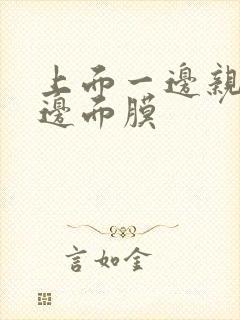 上而一邊親
邊而膜
言如金